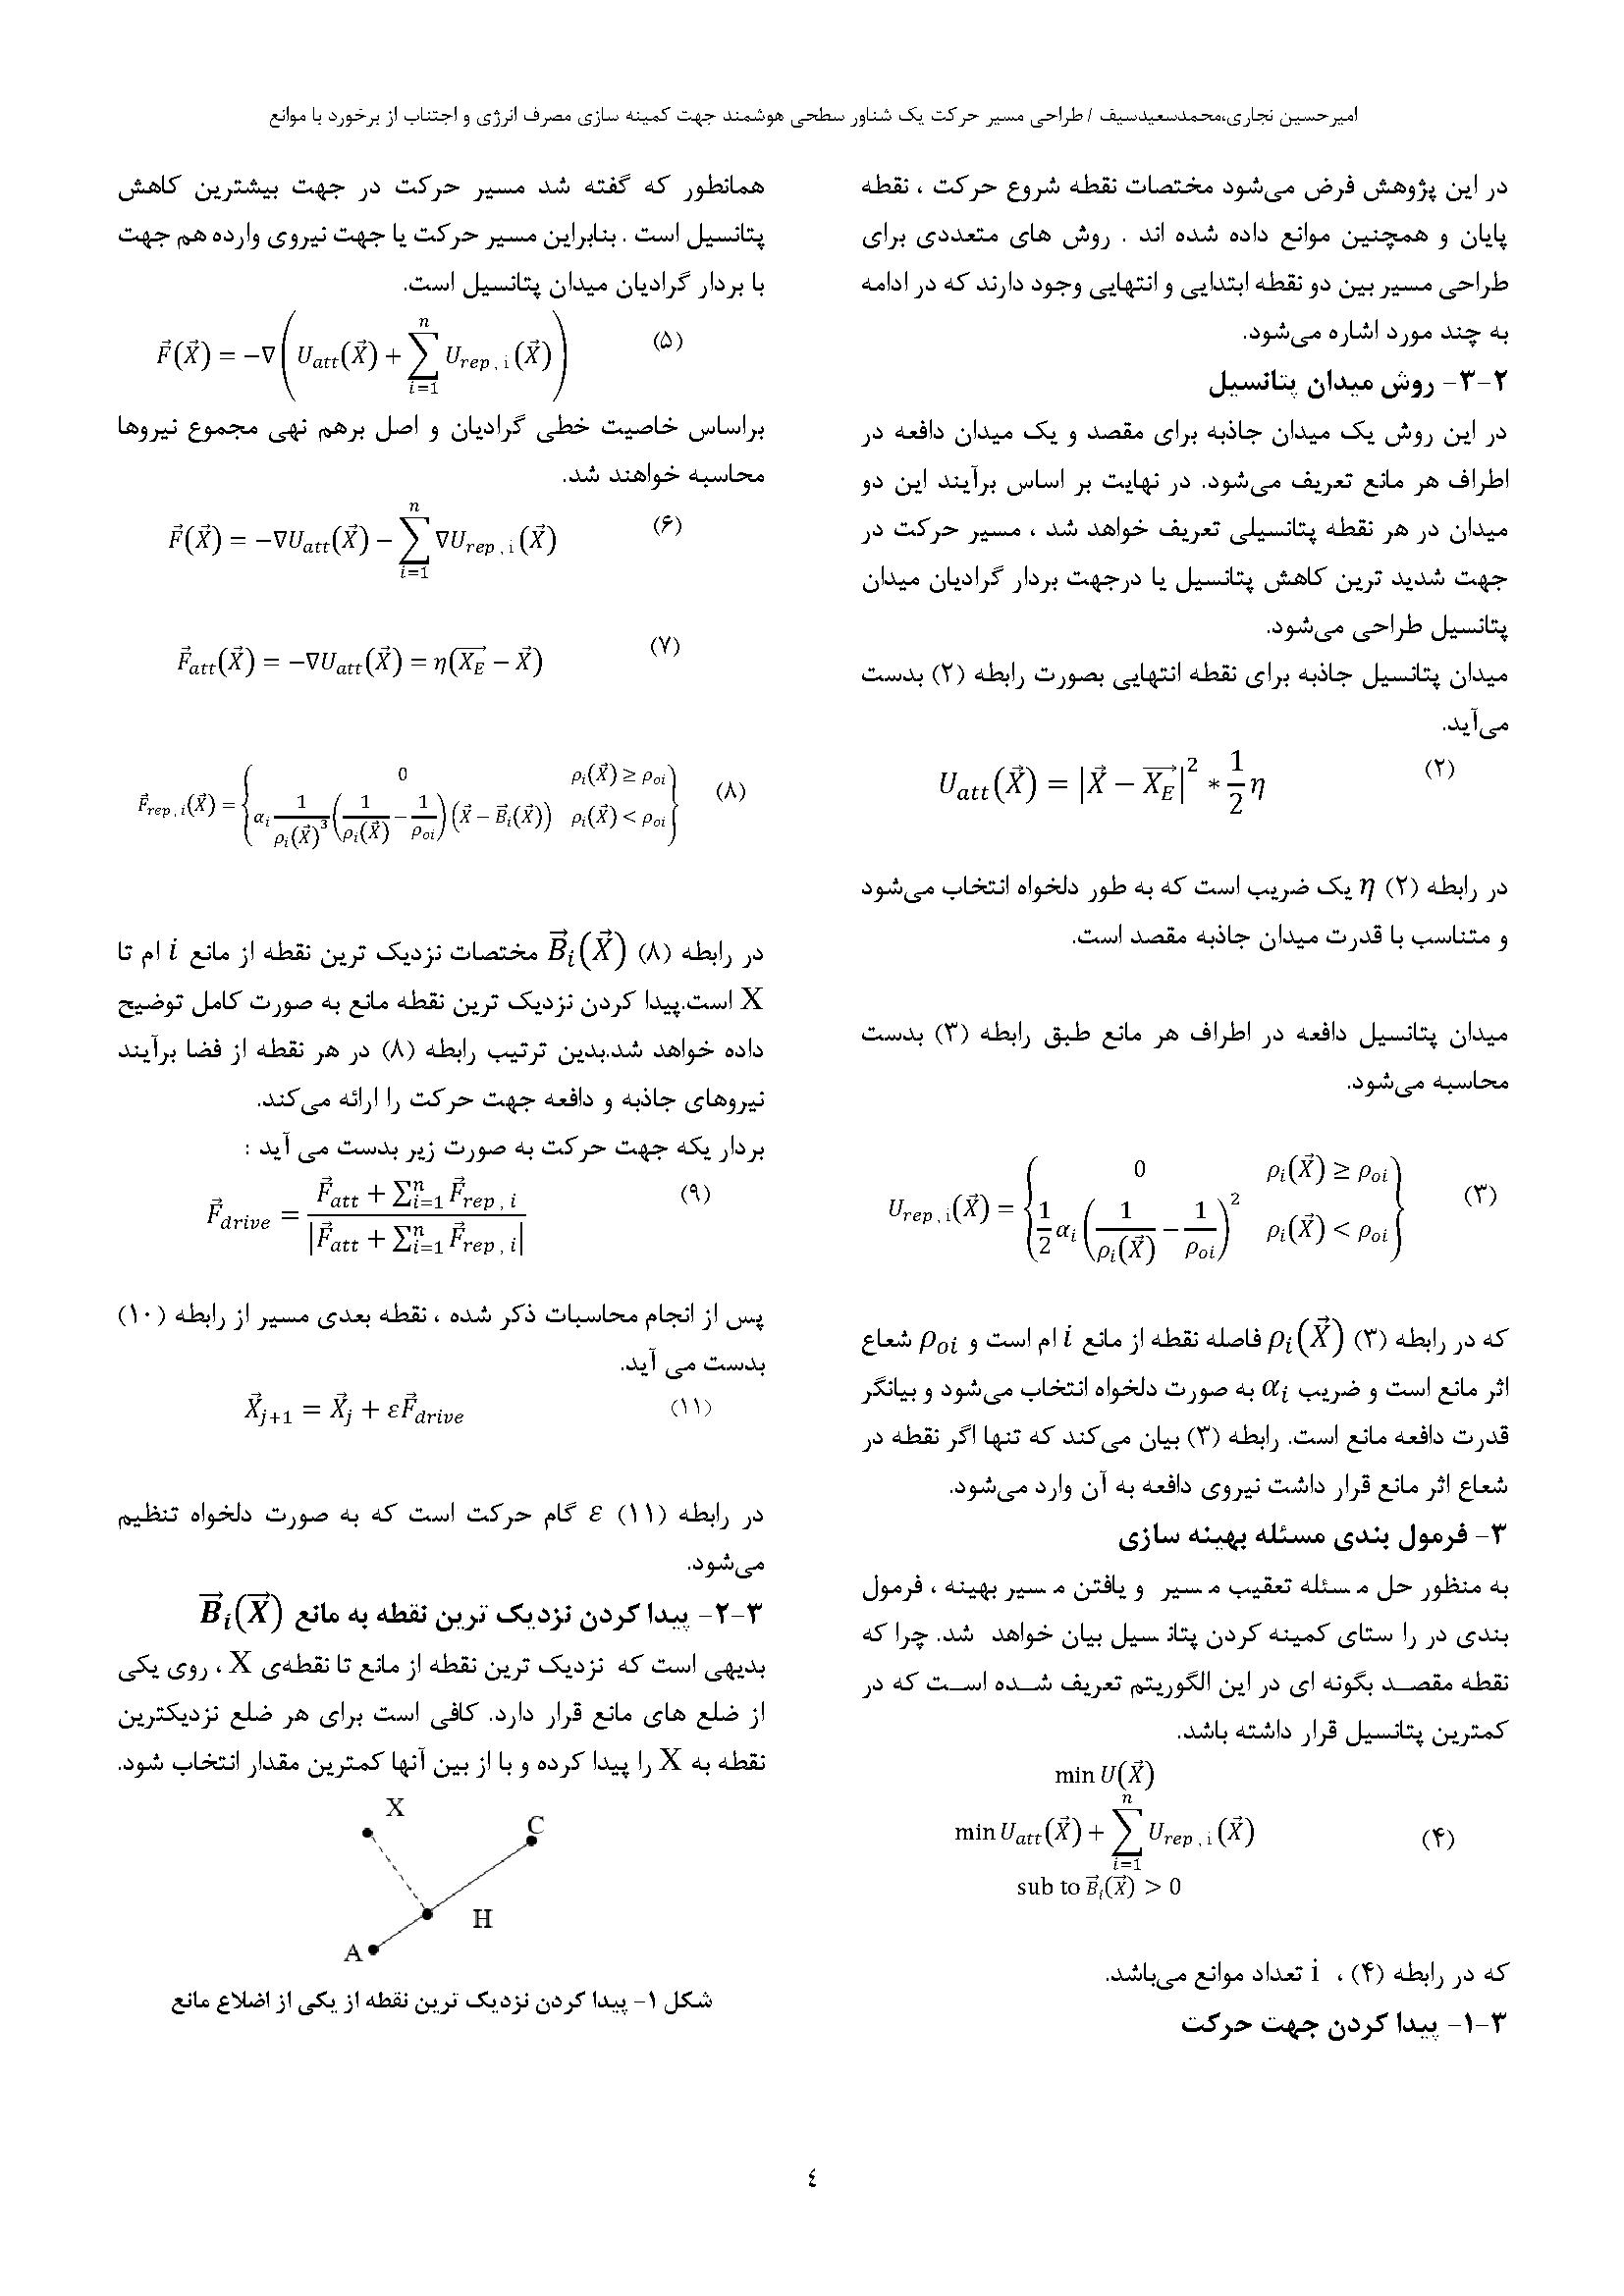 امیرحسین نجاری،محمدسعیدسیف / طراحی مسیر حرکت یک شناور سطحی هوشمند جهت کمینه سازی مصرف انرژی و اجتناب از برخورد با موانع
در این پژوهش فرض می‌شود مختصات نقطه شروع حرکت ، نقطه
پایان و همچنین موانع داده شده اند . روش های متعددی برای
طراحی مسیر بین دو نقطه ابتدایی و انتهایی وجود دارند که در ادامه
به چند مورد اشاره می‌شود.
۲-۳- روش میدان پتانسیل
در این روش یک میدان جاذبه برای مقصد و یک میدان دافعه در
اطراف هر مانع تعریف می‌شود. در نهایت بر اساس برآیند این دو
میدان در هر نقطه پتانسیلی تعریف خواهد شد ، مسیر حرکت در
جهت شدید ترین کاهش پتانسیل یا درجهت بردار گرادیان میدان
پتانسیل طراحی می‌شود.
میدان پتانسیل جاذبه برای نقطه انتهایی بصورت رابطه (۲) بدست
می‌آید.
(۲) $U_{att}(\vec{X}) = |\vec{X} - \overrightarrow{X_E}|^2 * \frac{1}{2}\eta$
در رابطه (۲) η یک ضریب است که به طور دلخواه انتخاب می‌شود
و متناسب با قدرت میدان جاذبه مقصد است.
میدان پتانسیل دافعه در اطراف هر مانع طبق رابطه (۳) بدست
محاسبه می‌شود.
(۳) $U_{rep,i}(\vec{X}) = \begin{Bmatrix} 0 & \rho_i(\vec{X}) \geq \rho_{oi} \\ \frac{1}{2}\alpha_i\left(\frac{1}{\rho_i(\vec{X})} - \frac{1}{\rho_{oi}}\right)^2 & \rho_i(\vec{X}) < \rho_{oi} \end{Bmatrix}$
که در رابطه (۳) $\rho_i(\vec{X})$ فاصله نقطه از مانع i ام است و $\rho_{oi}$ شعاع
اثر مانع است و ضریب $\alpha_i$ به صورت دلخواه انتخاب می‌شود و بیانگر
قدرت دافعه مانع است. رابطه (۳) بیان می‌کند که تنها اگر نقطه در
شعاع اثر مانع قرار داشت نیروی دافعه به آن وارد می‌شود.
۳- فرمول بندی مسئله بهینه سازی
به منظور حل مسئله تعقیب مسیر و یافتن مسیر بهینه ، فرمول
بندی در را ستای کمینه کردن پتانسیل بیان خواهد شد. چرا که
نقطه مقصد بگونه ای در این الگوریتم تعریف شده است که در
کمترین پتانسیل قرار داشته باشد.
$\min U(\vec{X})$
(۴) $\min U_{att}(\vec{X}) + \sum_{i=1}^{n} U_{rep,i}(\vec{X})$
sub to $\vec{B}_i(\vec{X}) > 0$
که در رابطه (۴) ، i تعداد موانع می‌باشد.
۳-۱- پیدا کردن جهت حرکت
همانطور که گفته شد مسیر حرکت در جهت بیشترین کاهش
پتانسیل است . بنابراین مسیر حرکت یا جهت نیروی وارده هم جهت
با بردار گرادیان میدان پتانسیل است.
(۵) $\vec{F}(\vec{X}) = -\nabla\left(U_{att}(\vec{X}) + \sum_{i=1}^{n} U_{rep,i}(\vec{X})\right)$
براساس خاصیت خطی گرادیان و اصل برهم نهی مجموع نیروها
محاسبه خواهند شد.
(۶) $\vec{F}(\vec{X}) = -\nabla U_{att}(\vec{X}) - \sum_{i=1}^{n} \nabla U_{rep,i}(\vec{X})$
(۷) $\vec{F}_{att}(\vec{X}) = -\nabla U_{att}(\vec{X}) = \eta(\overrightarrow{X_E} - \vec{X})$
(۸) $\vec{F}_{rep,i}(\vec{X}) = \begin{Bmatrix} 0 & \rho_i(\vec{X}) \geq \rho_{oi} \\ \alpha_i \frac{1}{\rho_i(\vec{X})^3}\left(\frac{1}{\rho_i(\vec{X})} - \frac{1}{\rho_{oi}}\right)(\vec{X} - \vec{B}_i(\vec{X})) & \rho_i(\vec{X}) < \rho_{oi} \end{Bmatrix}$
در رابطه (۸) $\vec{B}_i(\vec{X})$ مختصات نزدیک ترین نقطه از مانع i ام تا
X است.پیدا کردن نزدیک ترین نقطه مانع به صورت کامل توضیح
داده خواهد شد.بدین ترتیب رابطه (۸) در هر نقطه از فضا برآیند
نیروهای جاذبه و دافعه جهت حرکت را ارائه می‌کند.
بردار یکه جهت حرکت به صورت زیر بدست می آید :
(۹) $\vec{F}_{drive} = \frac{\vec{F}_{att} + \sum_{i=1}^{n} \vec{F}_{rep,i}}{|\vec{F}_{att} + \sum_{i=1}^{n} \vec{F}_{rep,i}|}$
پس از انجام محاسبات ذکر شده ، نقطه بعدی مسیر از رابطه (۱۰)
بدست می آید.
(۱۱) $\vec{X}_{j+1} = \vec{X}_j + \varepsilon \vec{F}_{drive}$
در رابطه (۱۱) ε گام حرکت است که به صورت دلخواه تنظیم
می‌شود.
۳-۲- پیدا کردن نزدیک ترین نقطه به مانع $\vec{B}_i(\vec{X})$
بدیهی است که نزدیک ترین نقطه از مانع تا نقطه‌ی X ، روی یکی
از ضلع های مانع قرار دارد. کافی است برای هر ضلع نزدیکترین
نقطه به X را پیدا کرده و با از بین آنها کمترین مقدار انتخاب شود.
X
C
H
A
شکل ۱- پیدا کردن نزدیک ترین نقطه از یکی از اضلاع مانع
٤